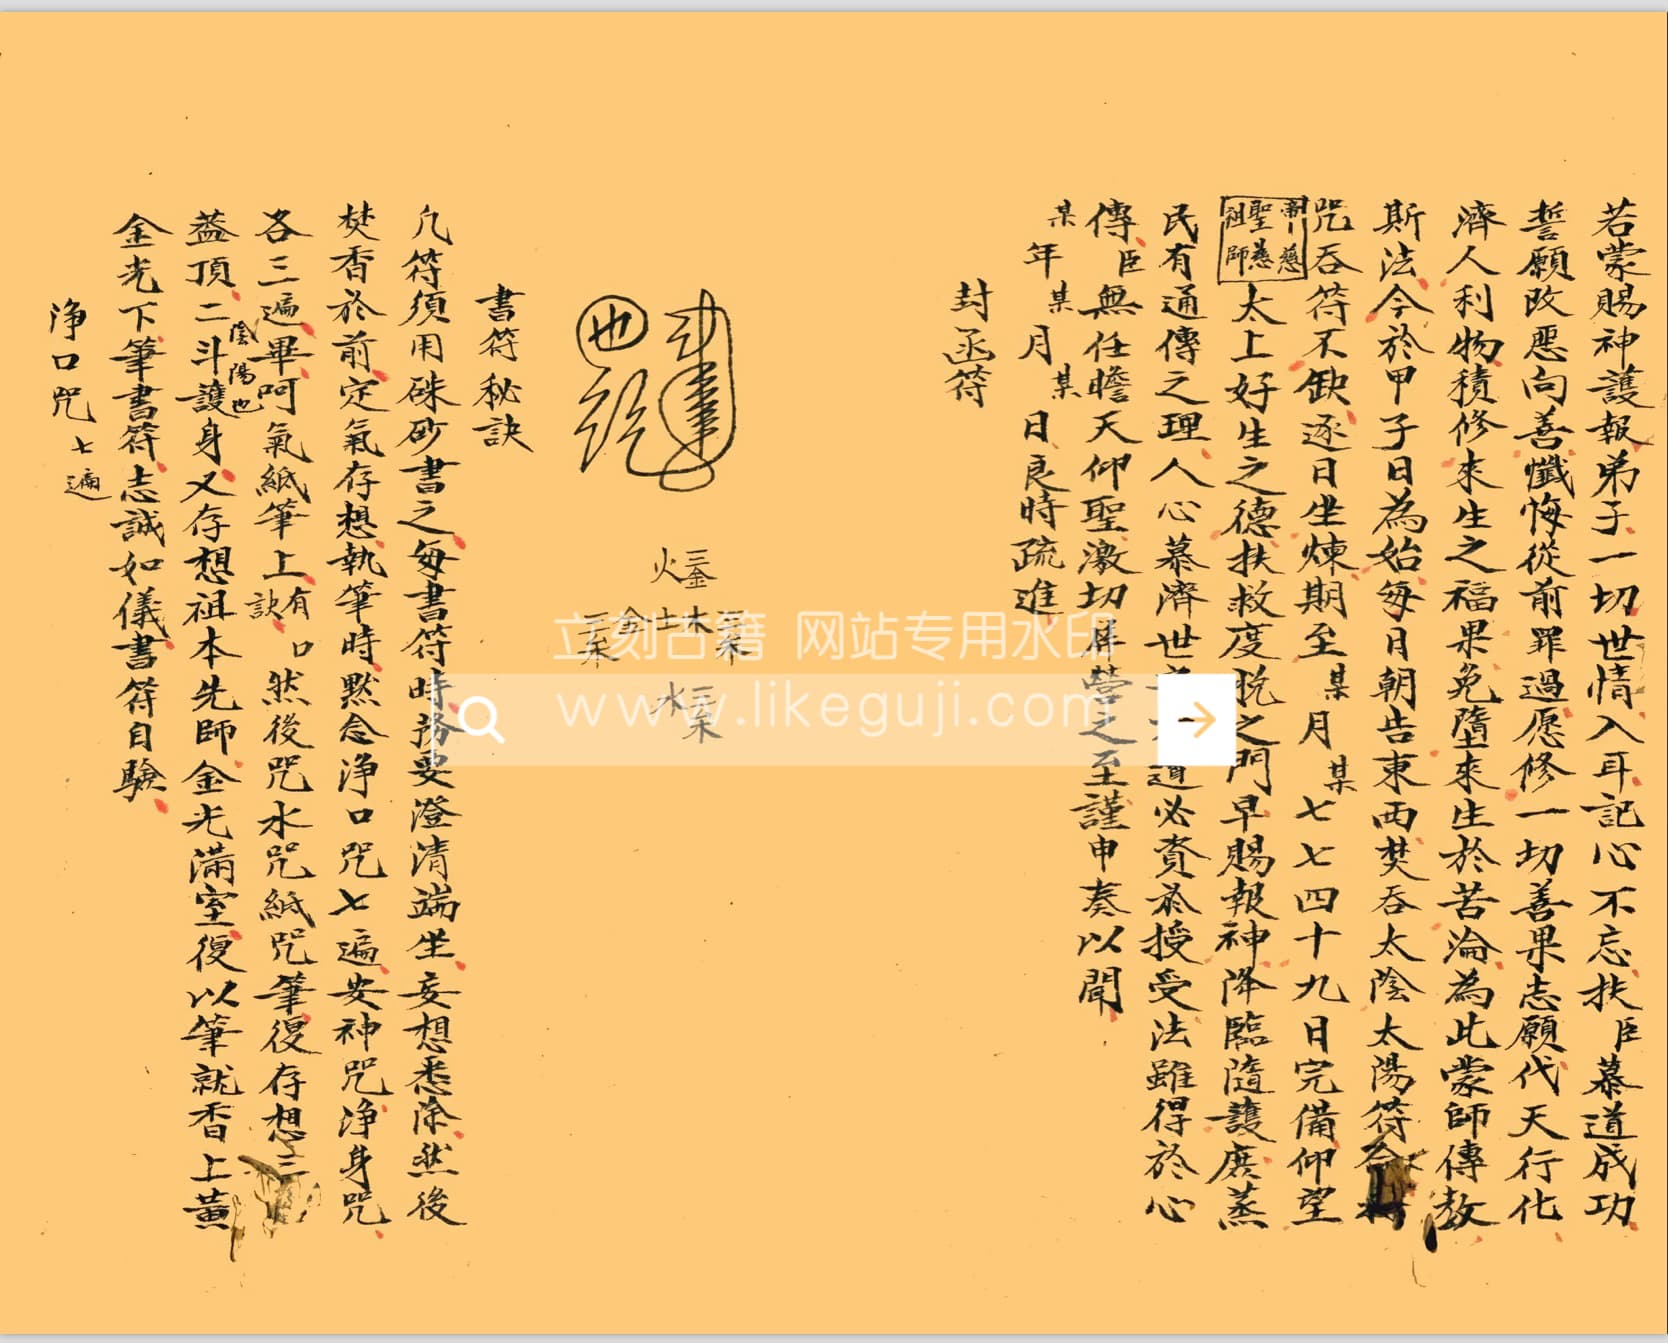 若蒙賜神護報弟子一切世情入耳記心不忘扶臣慕道成功
誓願改惡向善懺悔從前罪過愿修一切善果志願代天行化
濟人利物積修來生之福果免墮來生於苦淪為此蒙師傳教
斯法今於甲子日為始每月朝告東西焚吞太陰太陽符
咒吞符不缺逐日坐煉期至某月某七七四十九日完備仰望
慈
聖慈
祖師
太上好生之德扶救度脫之門早賜報神降臨隨護庶蒸
民有通傳之理人心慕濟世道必資於授受法雖得於心
傳臣無任瞻天仰聖激切屏營之至謹申奏以聞
某年某月某日良時疏進
封函符
也
三金
火
三木
木
土
金
三木
三木
水
書符秘訣
凡符須用硃砂書之每書符時務要澄清端坐妄想悉除然後
焚香於前定氣存想執筆時默念淨口咒七遍安神咒淨身咒
各三遍畢呵氣紙筆上有口訣然後咒水咒紙咒筆復存想三
蓋頂二斗陰陽也護身又存想祖本先師金光滿室復以筆就香上薰
金光下筆書符志誠如儀書符自驗
淨口咒七遍
立刻古籍 网站专用水印
www.likeguji.com